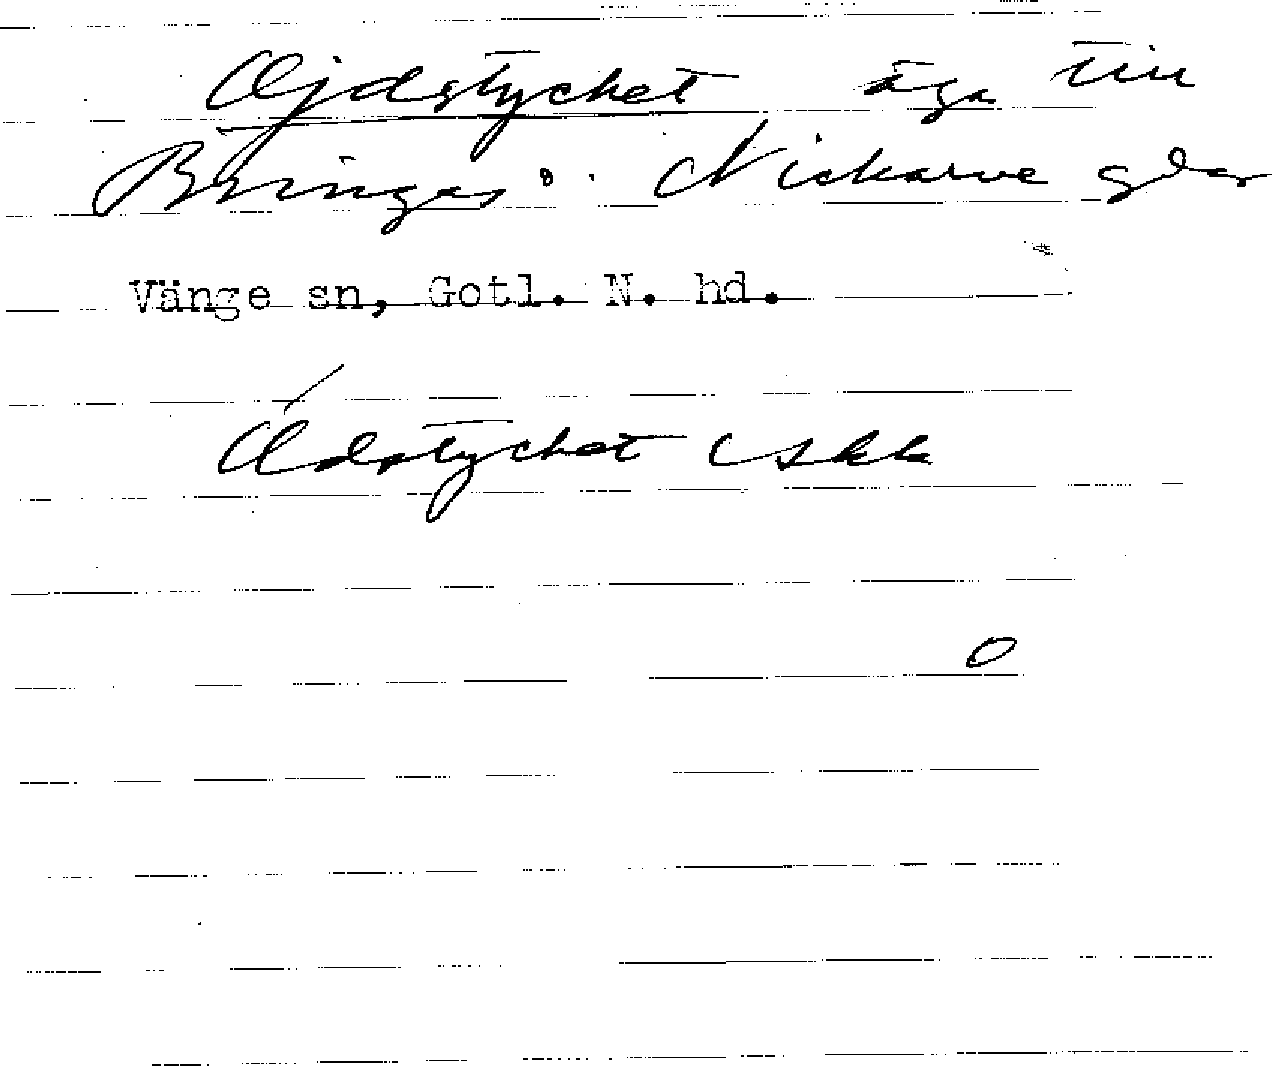 Ojdstycket äga till
Bringes o. Nickarve gdar
Vänge sn, Gotl. N. hd.
Ådstycket